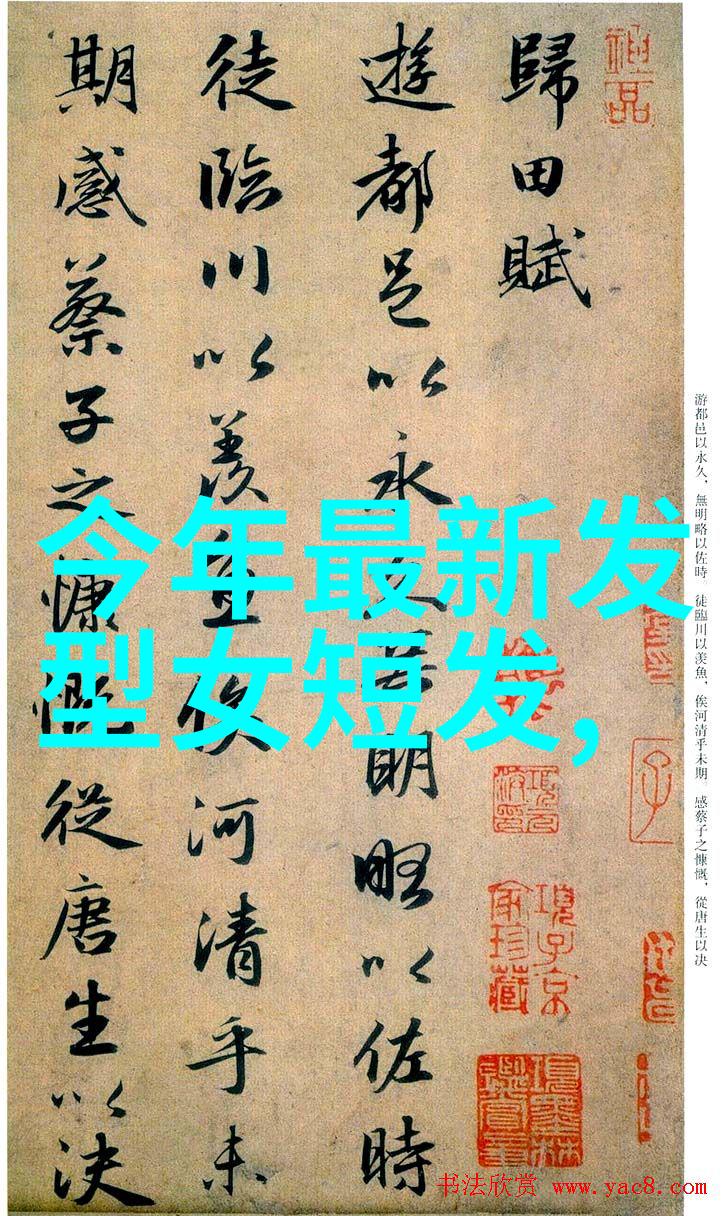 歸田賦
遊都邑以永久無明略以佐時
徒臨川以羨魚俟河清乎未
期感蔡子之慷慨從唐生以决
今年最新发
型女短发,
游都邑以永久,無明略以佐時 徒臨川以羡魚,俟河清乎未期。感蔡子之慷慨,從唐生以决
項子京家珍藏
項墨林鑑賞章
子
书法欣赏 www.yac8.com